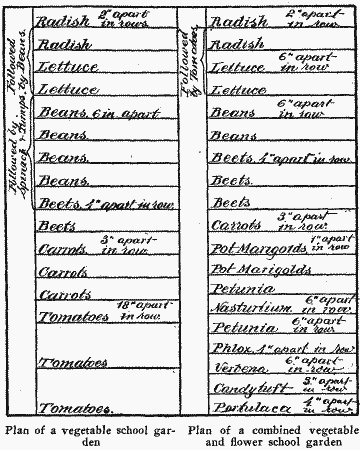 Followed by Spinach & Turnips, by Beans.
Followed
Radish 2" apart in rows
Radish
Lettuce
Lettuce
Beans, 6 in. apart
Beans.
Beans.
Beans.
Beets, 4" apart in row.
Beets
Carrots 3" apart in row.
Carrots
Carrots
Tomatoes 18" apart in row.
Tomatoes
Tomatoes.
Plan of a vegetable school gar-
den
Followed by Tomatoes,
Radish 2" apart in row.
Radish
Lettuce 6" apart in row
Lettuce
Beans 6" apart in row
Beans
Beets, 4" apart in row
Beets.
Beets
Carrots 3" apart in row.
Pot Marigolds 1" apart in row
Pot Marigolds
Petunia
Nasturtium 6" apart in row
Petunia 6" apart in row
Phlox, 4" apart in row
Verbena 6" apart in row.
Candytuft 3" apart in row
Portulaca 4" apart in row
Plan of a combined vegetable
and flower school garden